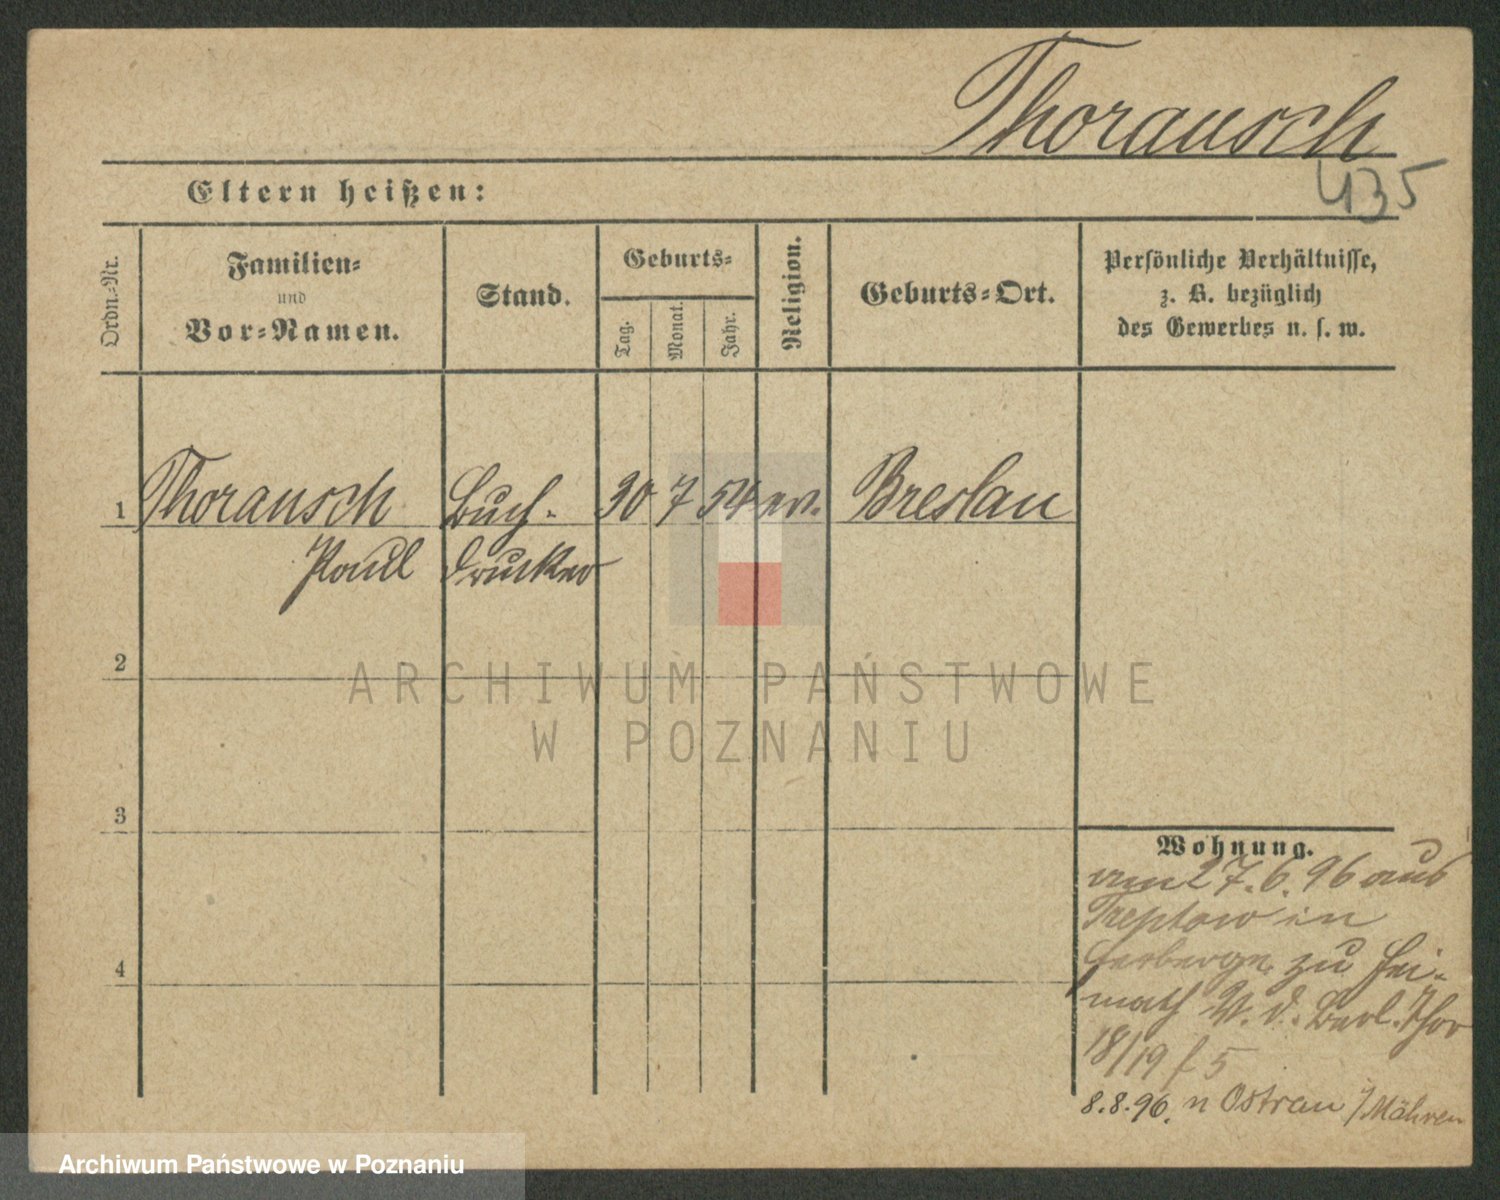 Thorausch
435
Eltern heißen:
Ordn.-Nr.
Familien-
und
Vor-Namen.
Stand.
Geburts-
Tag.
Monat.
Jahr.
Religion.
Geburts-Ort.
Persönliche Verhältnisse,
z. B. bezüglich
des Gewerbes u. s. w.
1 Thorausch Buch- 30 7 54 ev. Breslau
Paul drucker
2
3
4
Wohnung.
am 27.6.96 aus
Treptow in
Herberge zu Hei-
math V. d. Berl. Thor
18/19 f 5
8.8.96. n Ostrau i/Mähren
ARCHIWUM PAŃSTWOWE
W POZNANIU
Archiwum Państwowe w Poznaniu